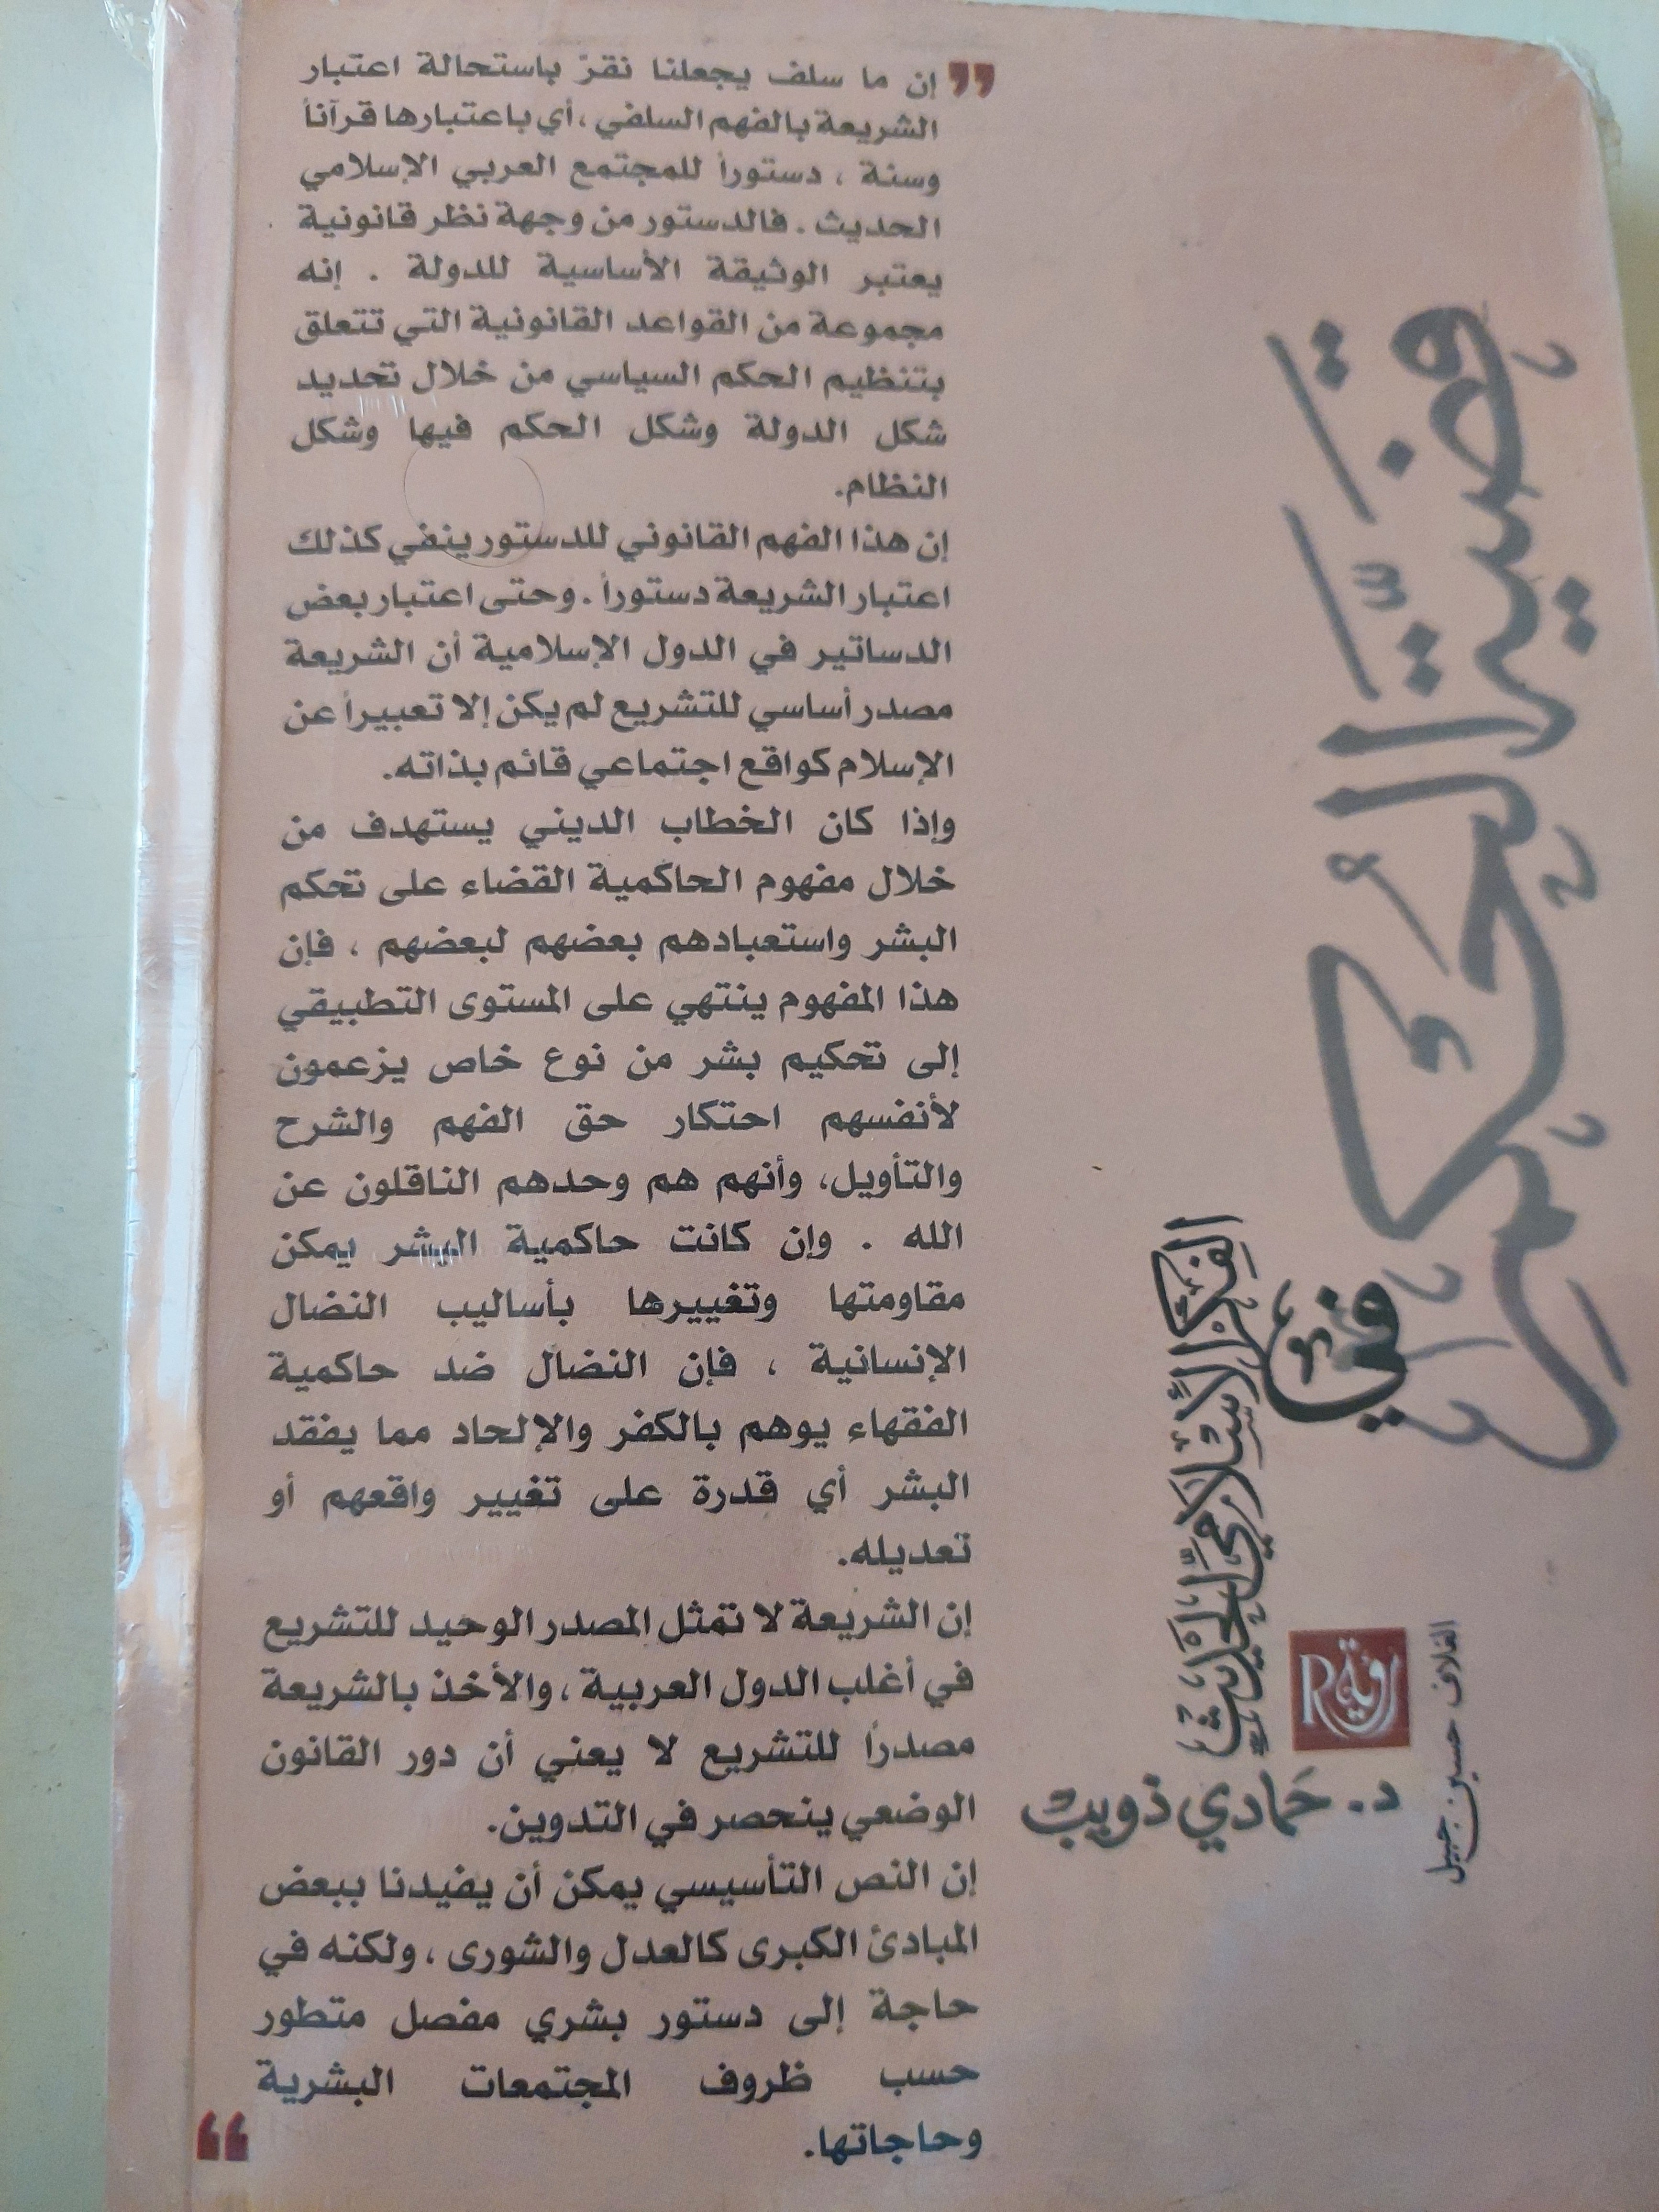 إن ما سلف يجعلنا نقرّ باستحالة اعتبار
الشريعة بالفهم السلفي ، أي باعتبارها قرآناً
وسنة ، دستوراً للمجتمع العربي الإسلامي
الحديث . فالدستور من وجهة نظر قانونية
يعتبر الوثيقة الأساسية للدولة . إنه
مجموعة من القواعد القانونية التي تتعلق
بتنظيم الحكم السياسي من خلال تحديد
شكل الدولة وشكل الحكم فيها وشكل
النظام.
إن هذا الفهم القانوني للدستور ينفي كذلك
اعتبار الشريعة دستوراً . وحتى اعتبار بعض
الدساتير في الدول الإسلامية أن الشريعة
مصدر أساسي للتشريع لم يكن إلا تعبيراً عن
الإسلام كواقع اجتماعي قائم بذاته.
وإذا كان الخطاب الديني يستهدف من
خلال مفهوم الحاكمية القضاء على تحكم
البشر واستعبادهم بعضهم لبعضهم ، فإن
هذا المفهوم ينتهي على المستوى التطبيقي
إلى تحكيم بشر من نوع خاص يزعمون
لأنفسهم احتكار حق الفهم والشرح
والتأويل، وأنهم هم وحدهم الناقلون عن
الله . وإن كانت حاكمية البشر يمكن
مقاومتها وتغييرها بأساليب النضال
الإنسانية ، فإن النضال ضد حاكمية
الفقهاء يوهم بالكفر والإلحاد مما يفقد
البشر أي قدرة على تغيير واقعهم أو
تعديله.
إن الشريعة لا تمثل المصدر الوحيد للتشريع
في أغلب الدول العربية ، والأخذ بالشريعة
مصدرًا للتشريع لا يعني أن دور القانون
الوضعي ينحصر في التدوين.
إن النص التأسيسي يمكن أن يفيدنا ببعض
المبادئ الكبرى كالعدل والشورى ، ولكنه في
حاجة إلى دستور بشري مفصل متطور
حسب ظروف المجتمعات البشرية
وحاجاتها.
قضية الحكم
في
الفكر الإسلامي الحديث
د. حمادي ذويب
رؤية R
الغلاف حسين جبيل